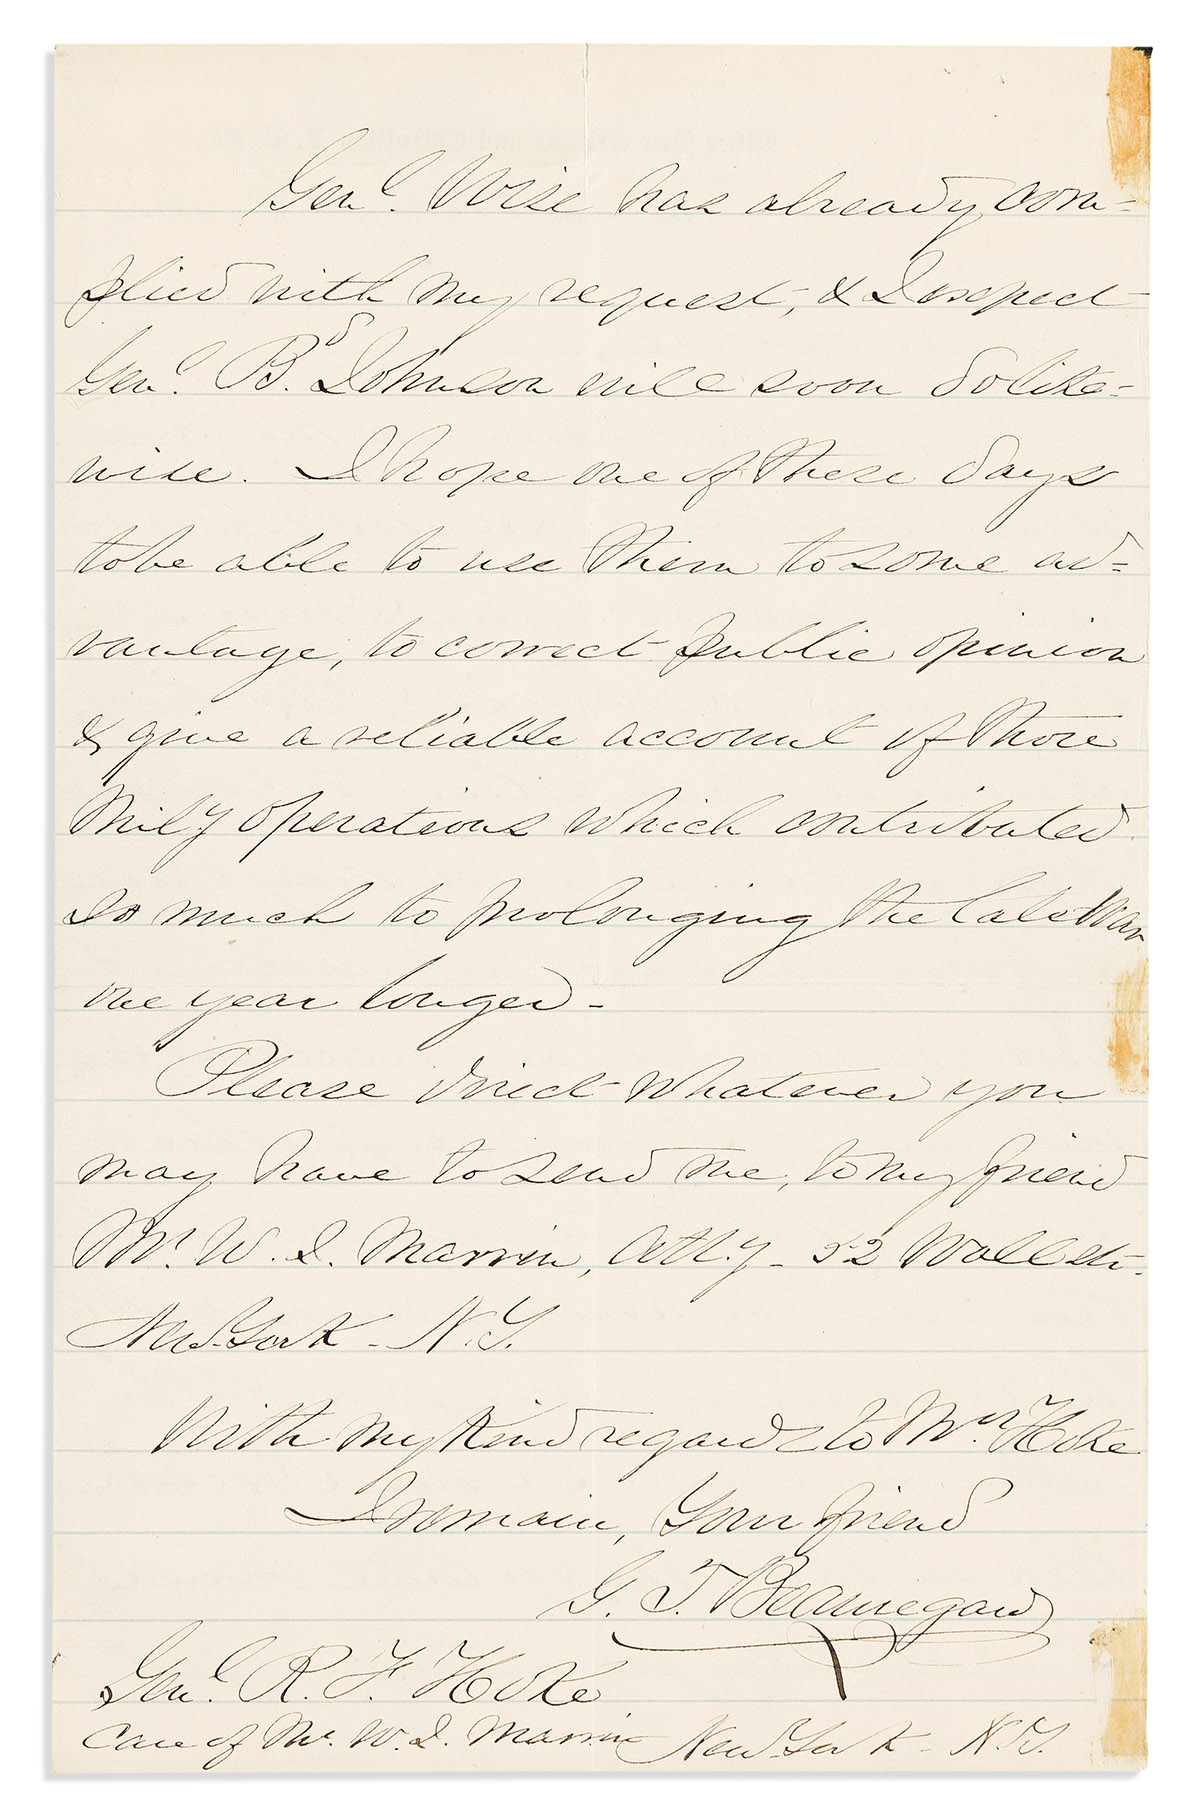 Genl. Wise has already com-
plied with my request, & I expect
Genl. B.d Johnson will soon do like-
wise. I hope one of these days
to be able to use them to some ad-
vantage, to correct public opinion
& give a reliable account of those
Mily operations which contributed
so much to prolonging the late War
one year longer -
Please direct whatever you
may have to send me, to my friend
Mr. W. I. Marrin, Att.y - 52 Wall st.
New York - N.Y.
With my kind regards to Mrs. Hoke
I remain, Your friend
G. T. Beauregard
Genl. R. F. Hoke
Care of Mr. W. I. Marrin New York - N.Y.